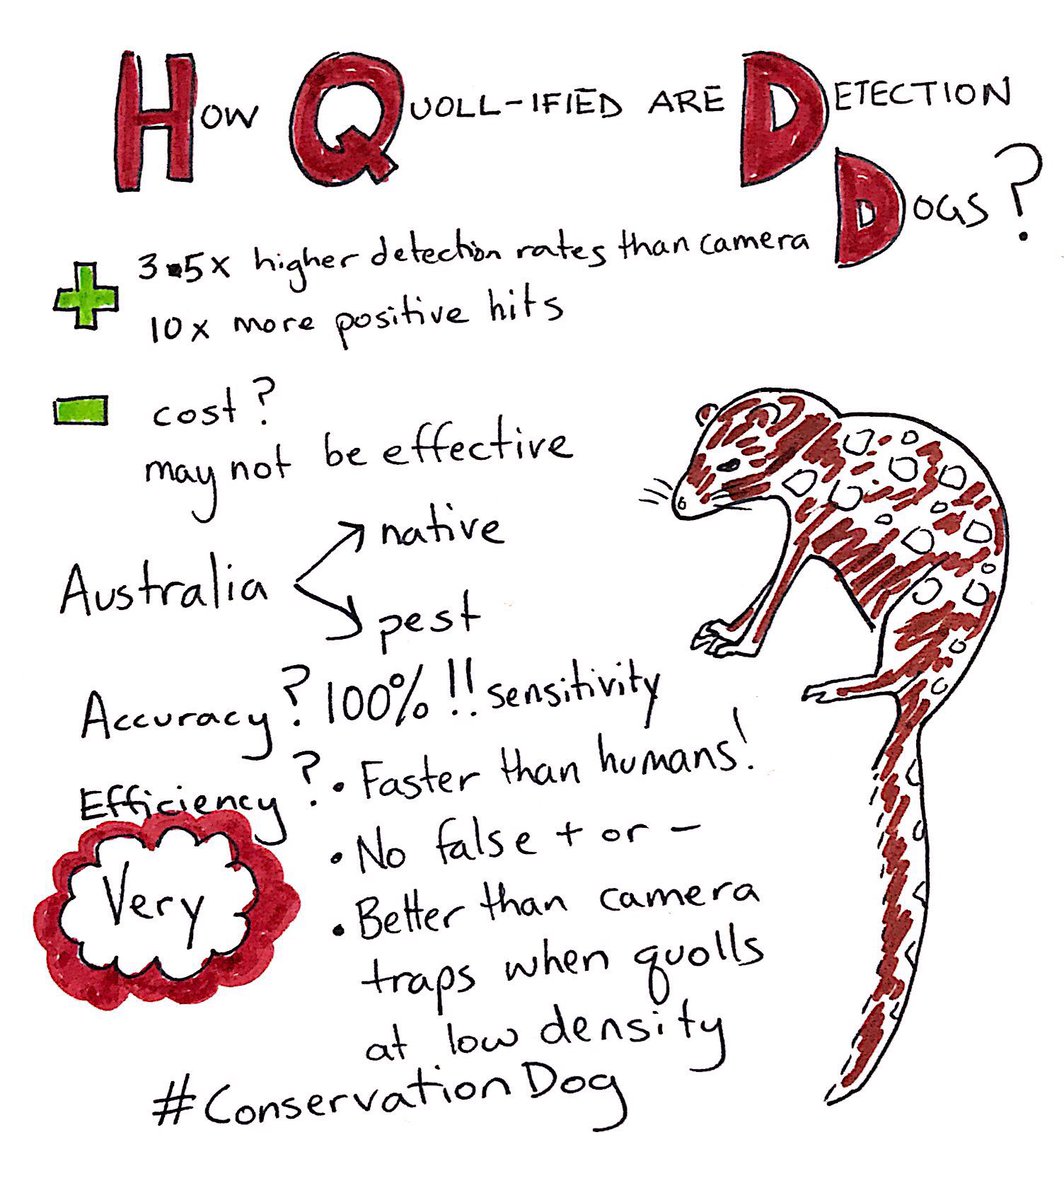 How Quoll-ified are Detection
Dogs?
+ 3.5x higher detection rates than camera
10x more positive hits
- cost?
may not be effective
native
Australia
pest
Accuracy? 100%!! sensitivity
Efficiency? • Faster than humans!
• No false + or -
Very
• Better than camera
traps when quolls
at low density
#ConservationDog